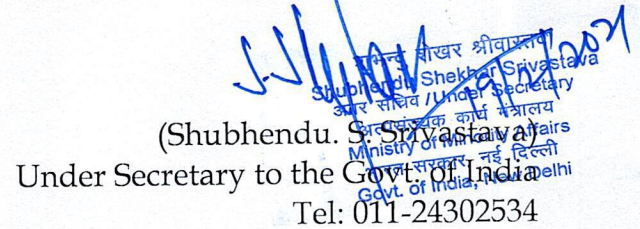 शुभेन्दु शेखर श्रीवास्तव
Shubhendu Shekhar Srivastava
अवर सचिव / Under Secretary
अल्पसंख्यक कार्य मंत्रालय
Ministry of Minority Affairs
भारत सरकार, नई दिल्ली
Govt. of India, New Delhi
(Shubhendu. S. Srivastava)
Under Secretary to the Govt. of India
Tel: 011-24302534